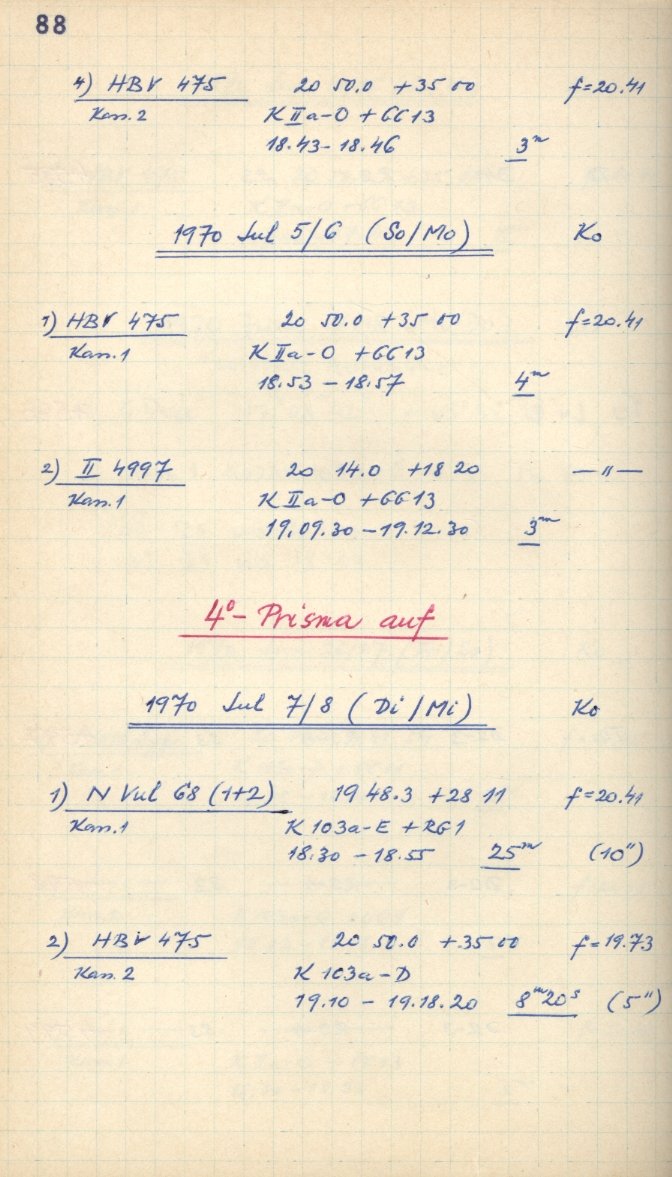 88
4) HBV 475 20 50.0 +35 00 f=20.41
Kass. 2 K IIa-O + GG13
18.43 - 18.46 3ᵐ
1970 Jul 5/6 (So/Mo) Ko
1) HBV 475 20 50.0 +35 00 f=20.41
Kass. 1 K IIa-O +GG13
18.53 - 18.57 4ᵐ
2) II 4997 20 14.0 +18 20 —"—
Kass. 1 K IIa-O +GG13
19.09.30 - 19.12.30 3ᵐ
4°- Prisma auf
1970 Jul 7/8 (Di/Mi) Ko
1) N Vul 68 (1+2) 19 48.3 +28 11 f=20.41
Kass. 1 K 103a-E + RG1
18.30 - 18.55 25ᵐ (10")
2) HBV 475 20 50.0 +35 00 f=19.73
Kass. 2 K 103a-D
19.10 - 19.18.20 8ᵐ20ˢ (5")